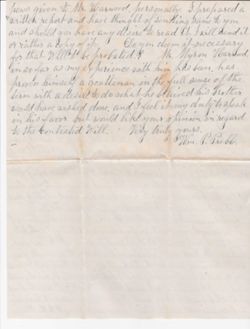 was given to Mr Harwood, personally. I prepared a
written report and have thought of sending same to you
and should you have any desire to read it I will send it
or rather a copy of it. Do you deem it necessary
for that Will to be probated? Mr. Byron Harwood
in so far as my experience with him has been, has
proven himself a gentleman in the full sense of the
term with a desire to do what he believed his Brother
would have wished done, and I feel it my duty to speak
in his favor but would like your opinion in regard
to the Contested Will. Very truly yours,
Wm. P.